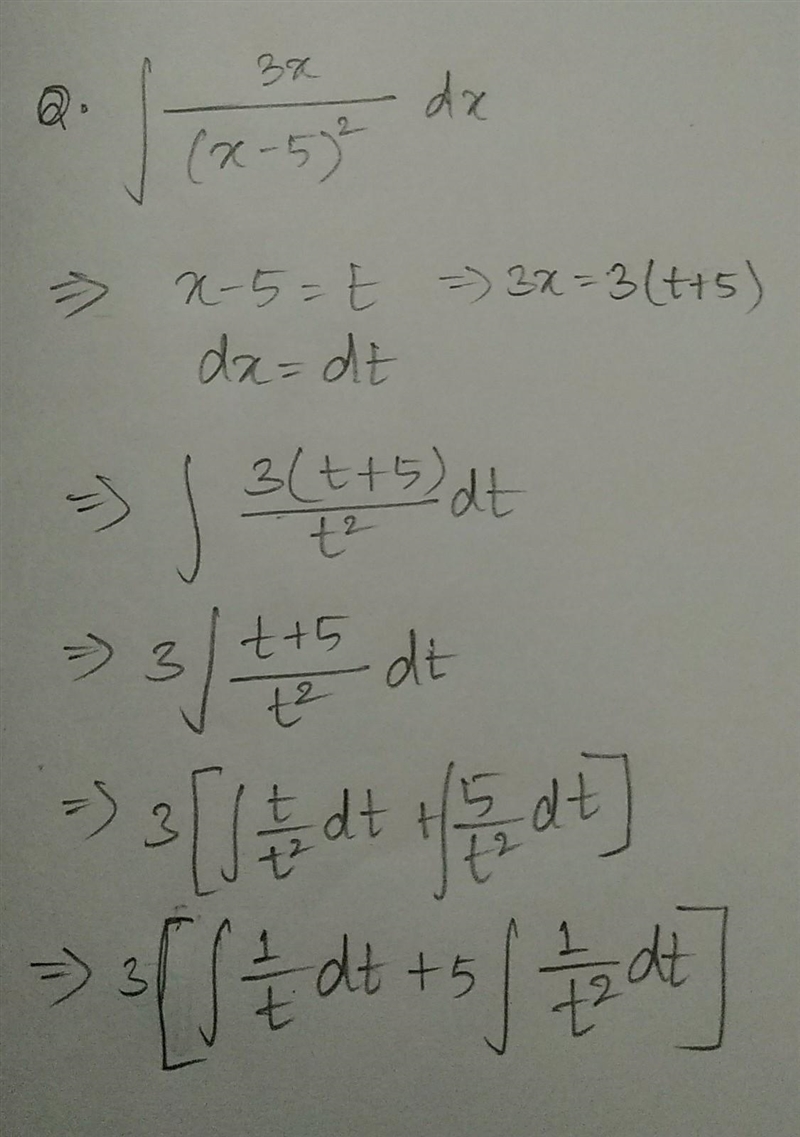 Q. ∫ 3x/(x-5)² dx
⇒ x-5=t ⇒3x=3(t+5)
dx=dt
⇒ ∫ 3(t+5)/t² dt
⇒ 3∫ t+5/t² dt
⇒ 3[∫ t/t² dt + ∫ 5/t² dt]
⇒ 3[∫ 1/t dt + 5 ∫ 1/t² dt]